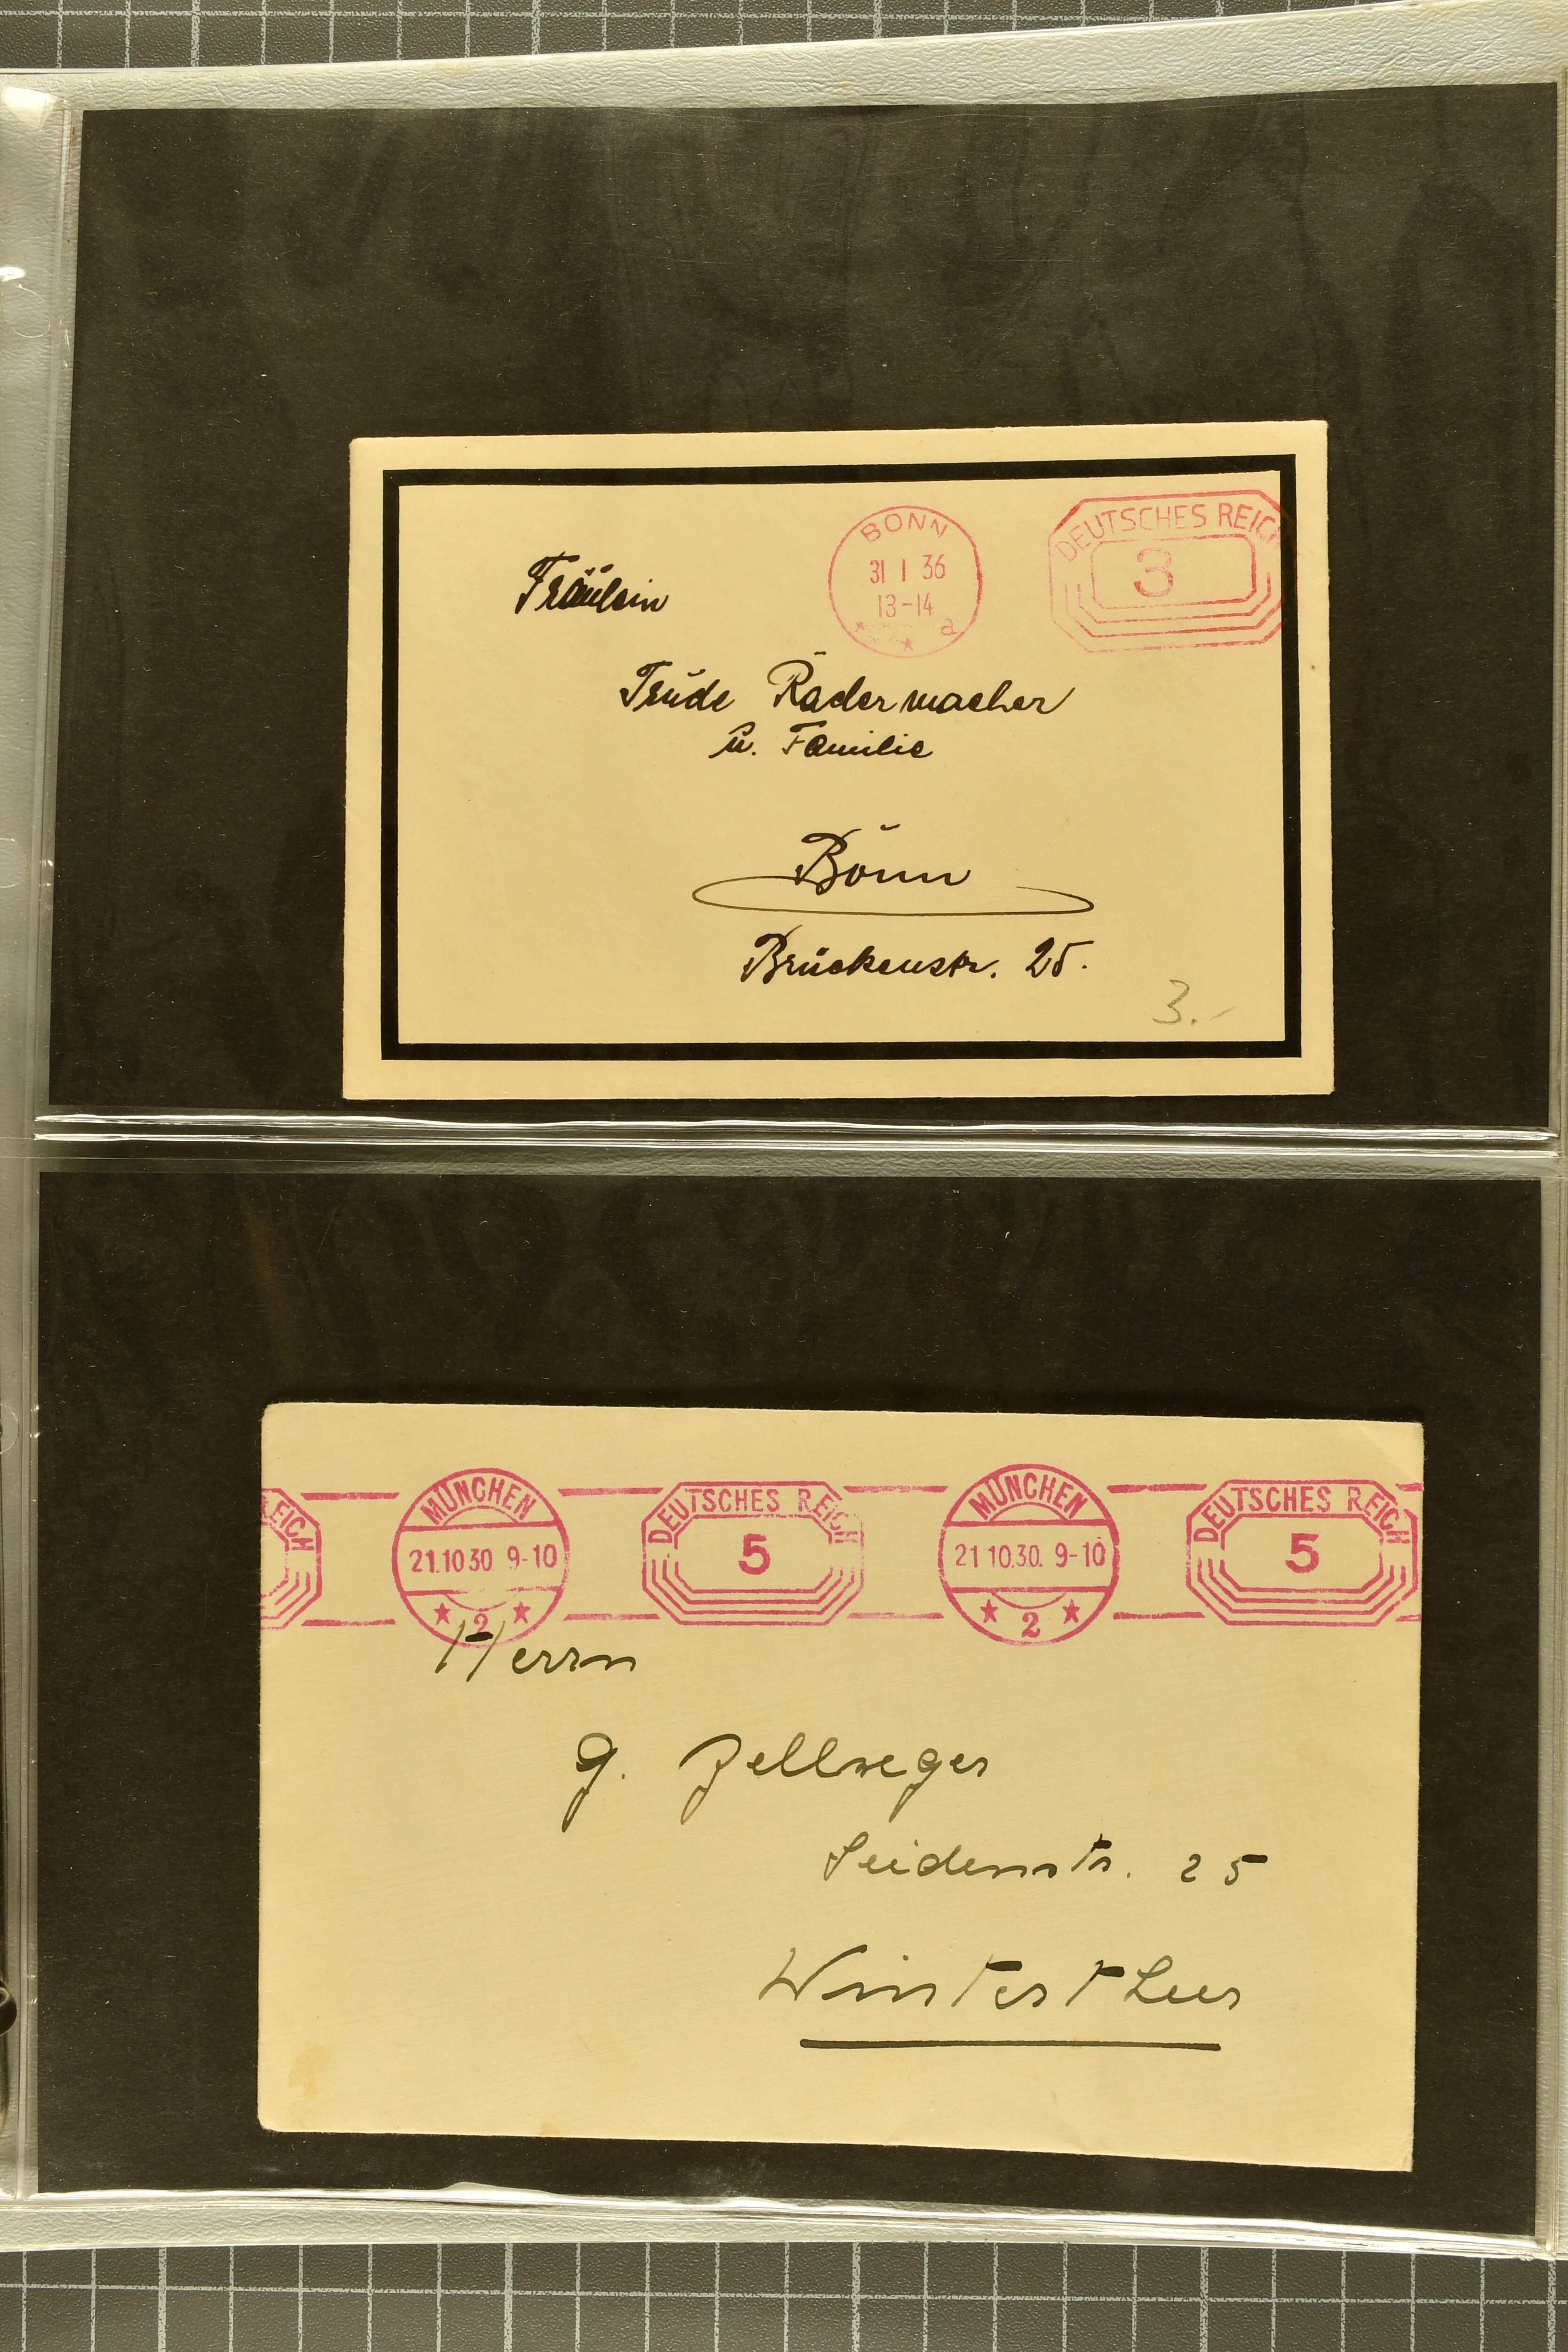 BONN
31 1 36
13-14
a
DEUTSCHES REICH
3
Fräulein
Trude Radermacher
u. Familie
Bonn
Brückenstr. 25.
3.-
REICH
MÜNCHEN
21.10 30 9-10
2
DEUTSCHES REICH
5
MÜNCHEN
21 10.30. 9-10
2
DEUTSCHES REICH
5
Herrn
G. Zellweger
Seidenstr. 25
Winterthur